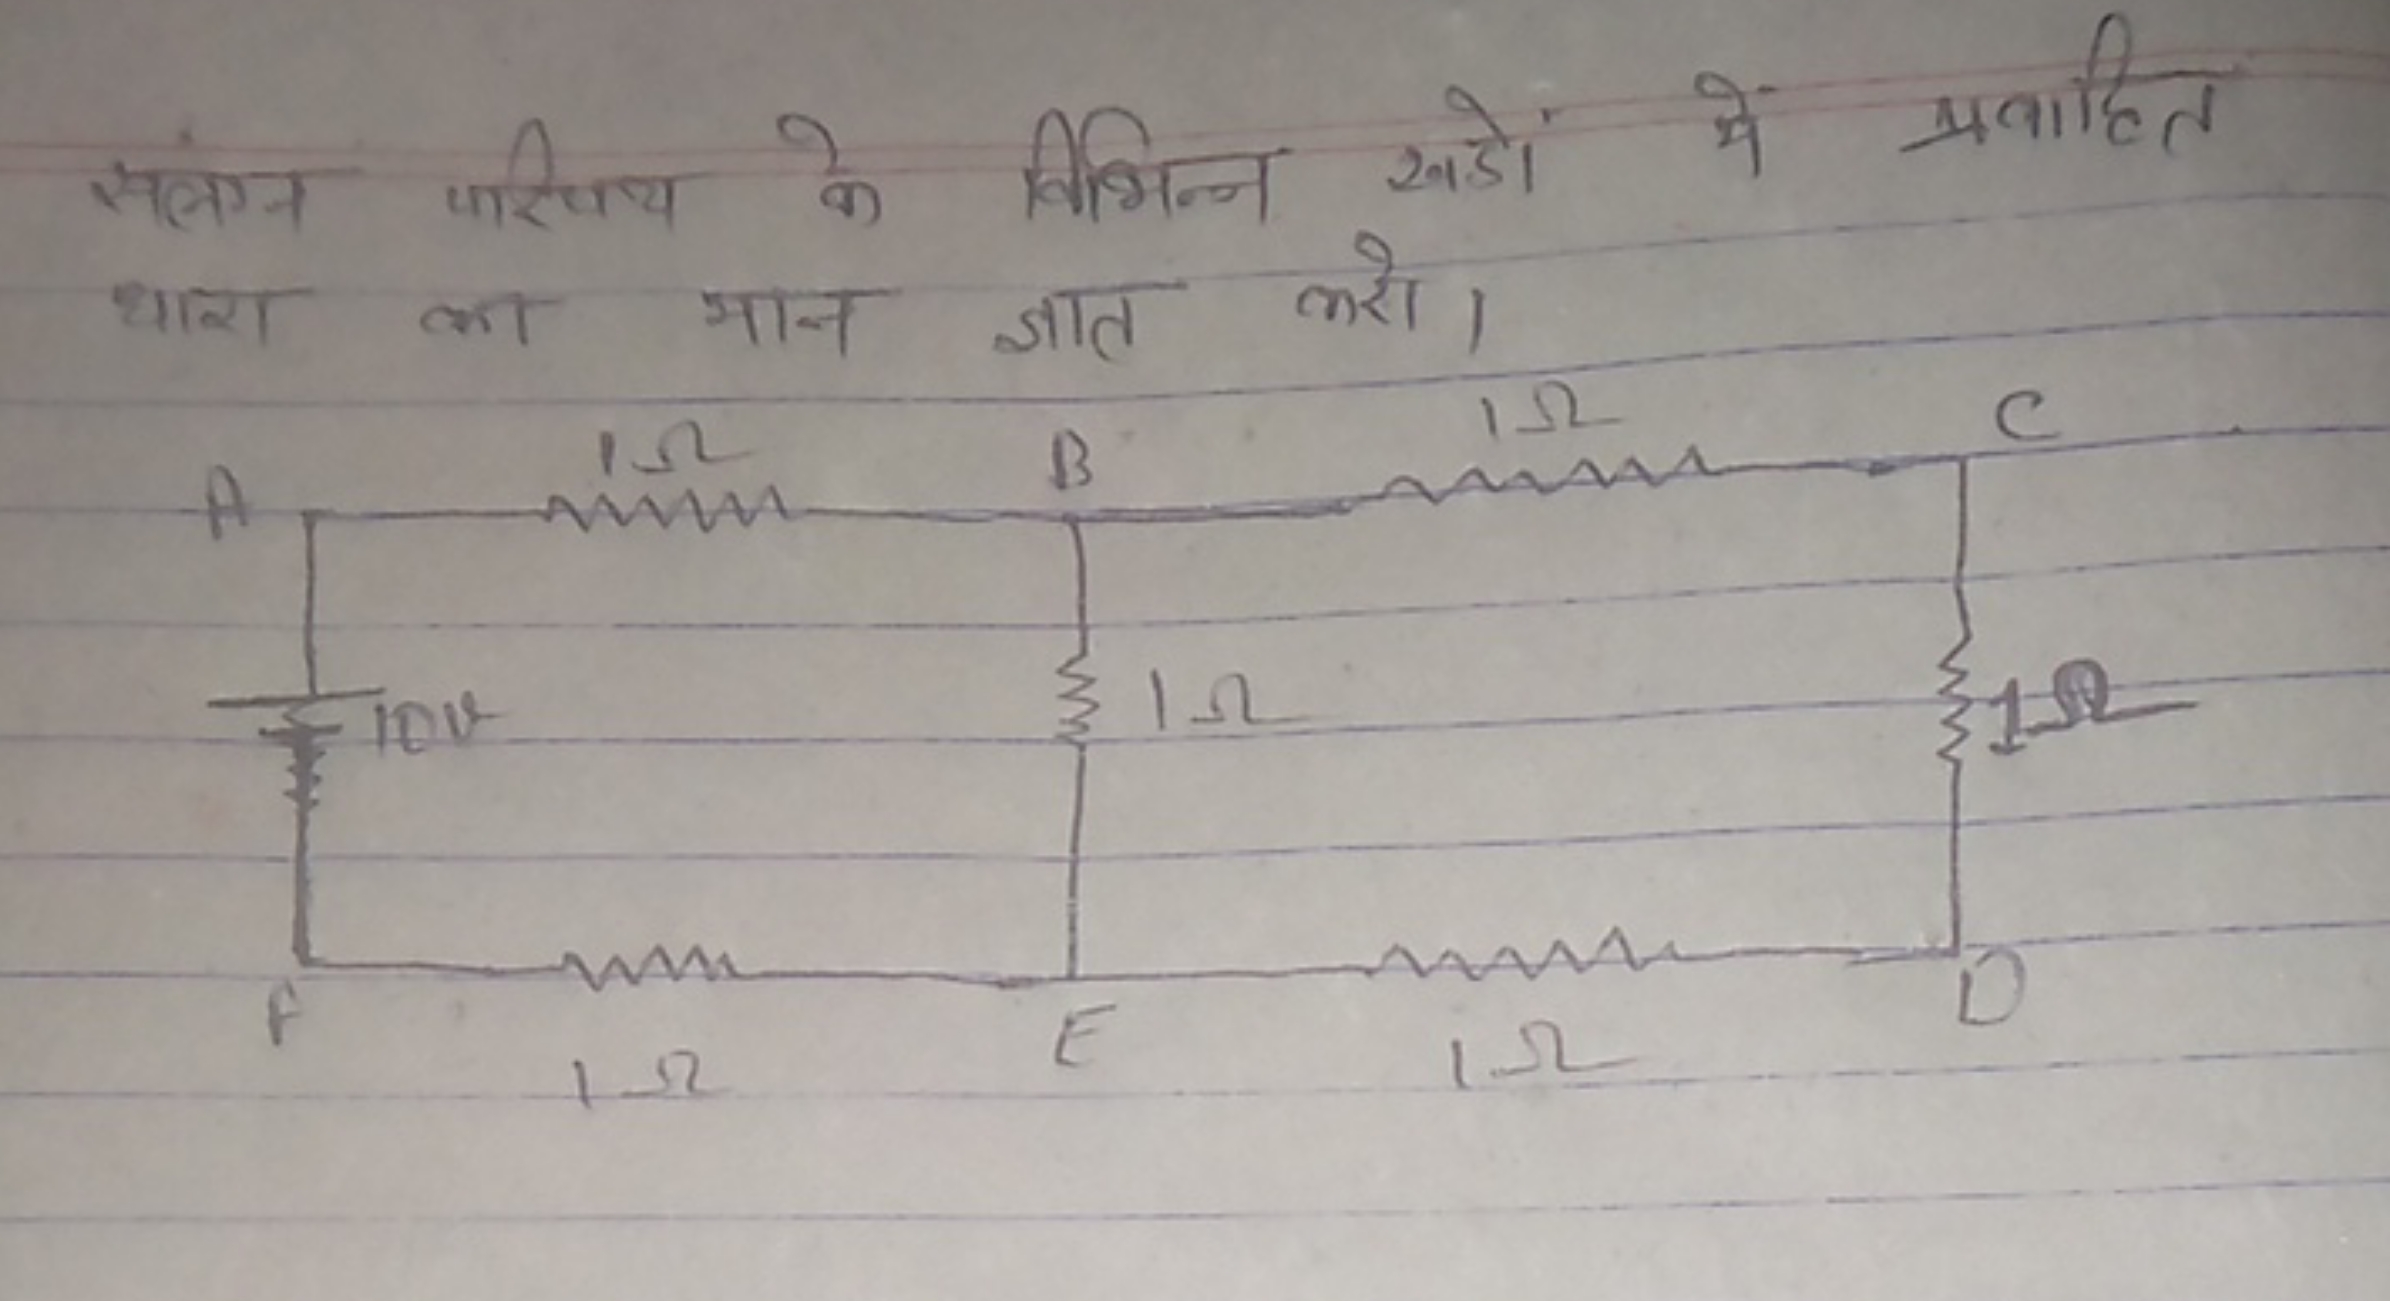 संलग्न परिपथ के विभिन्न खडों में प्रवाहित
धारा का मान ज्ञात करो।
1Ω 1Ω
A B C
10V 1Ω 1Ω
F E D
1Ω 1Ω